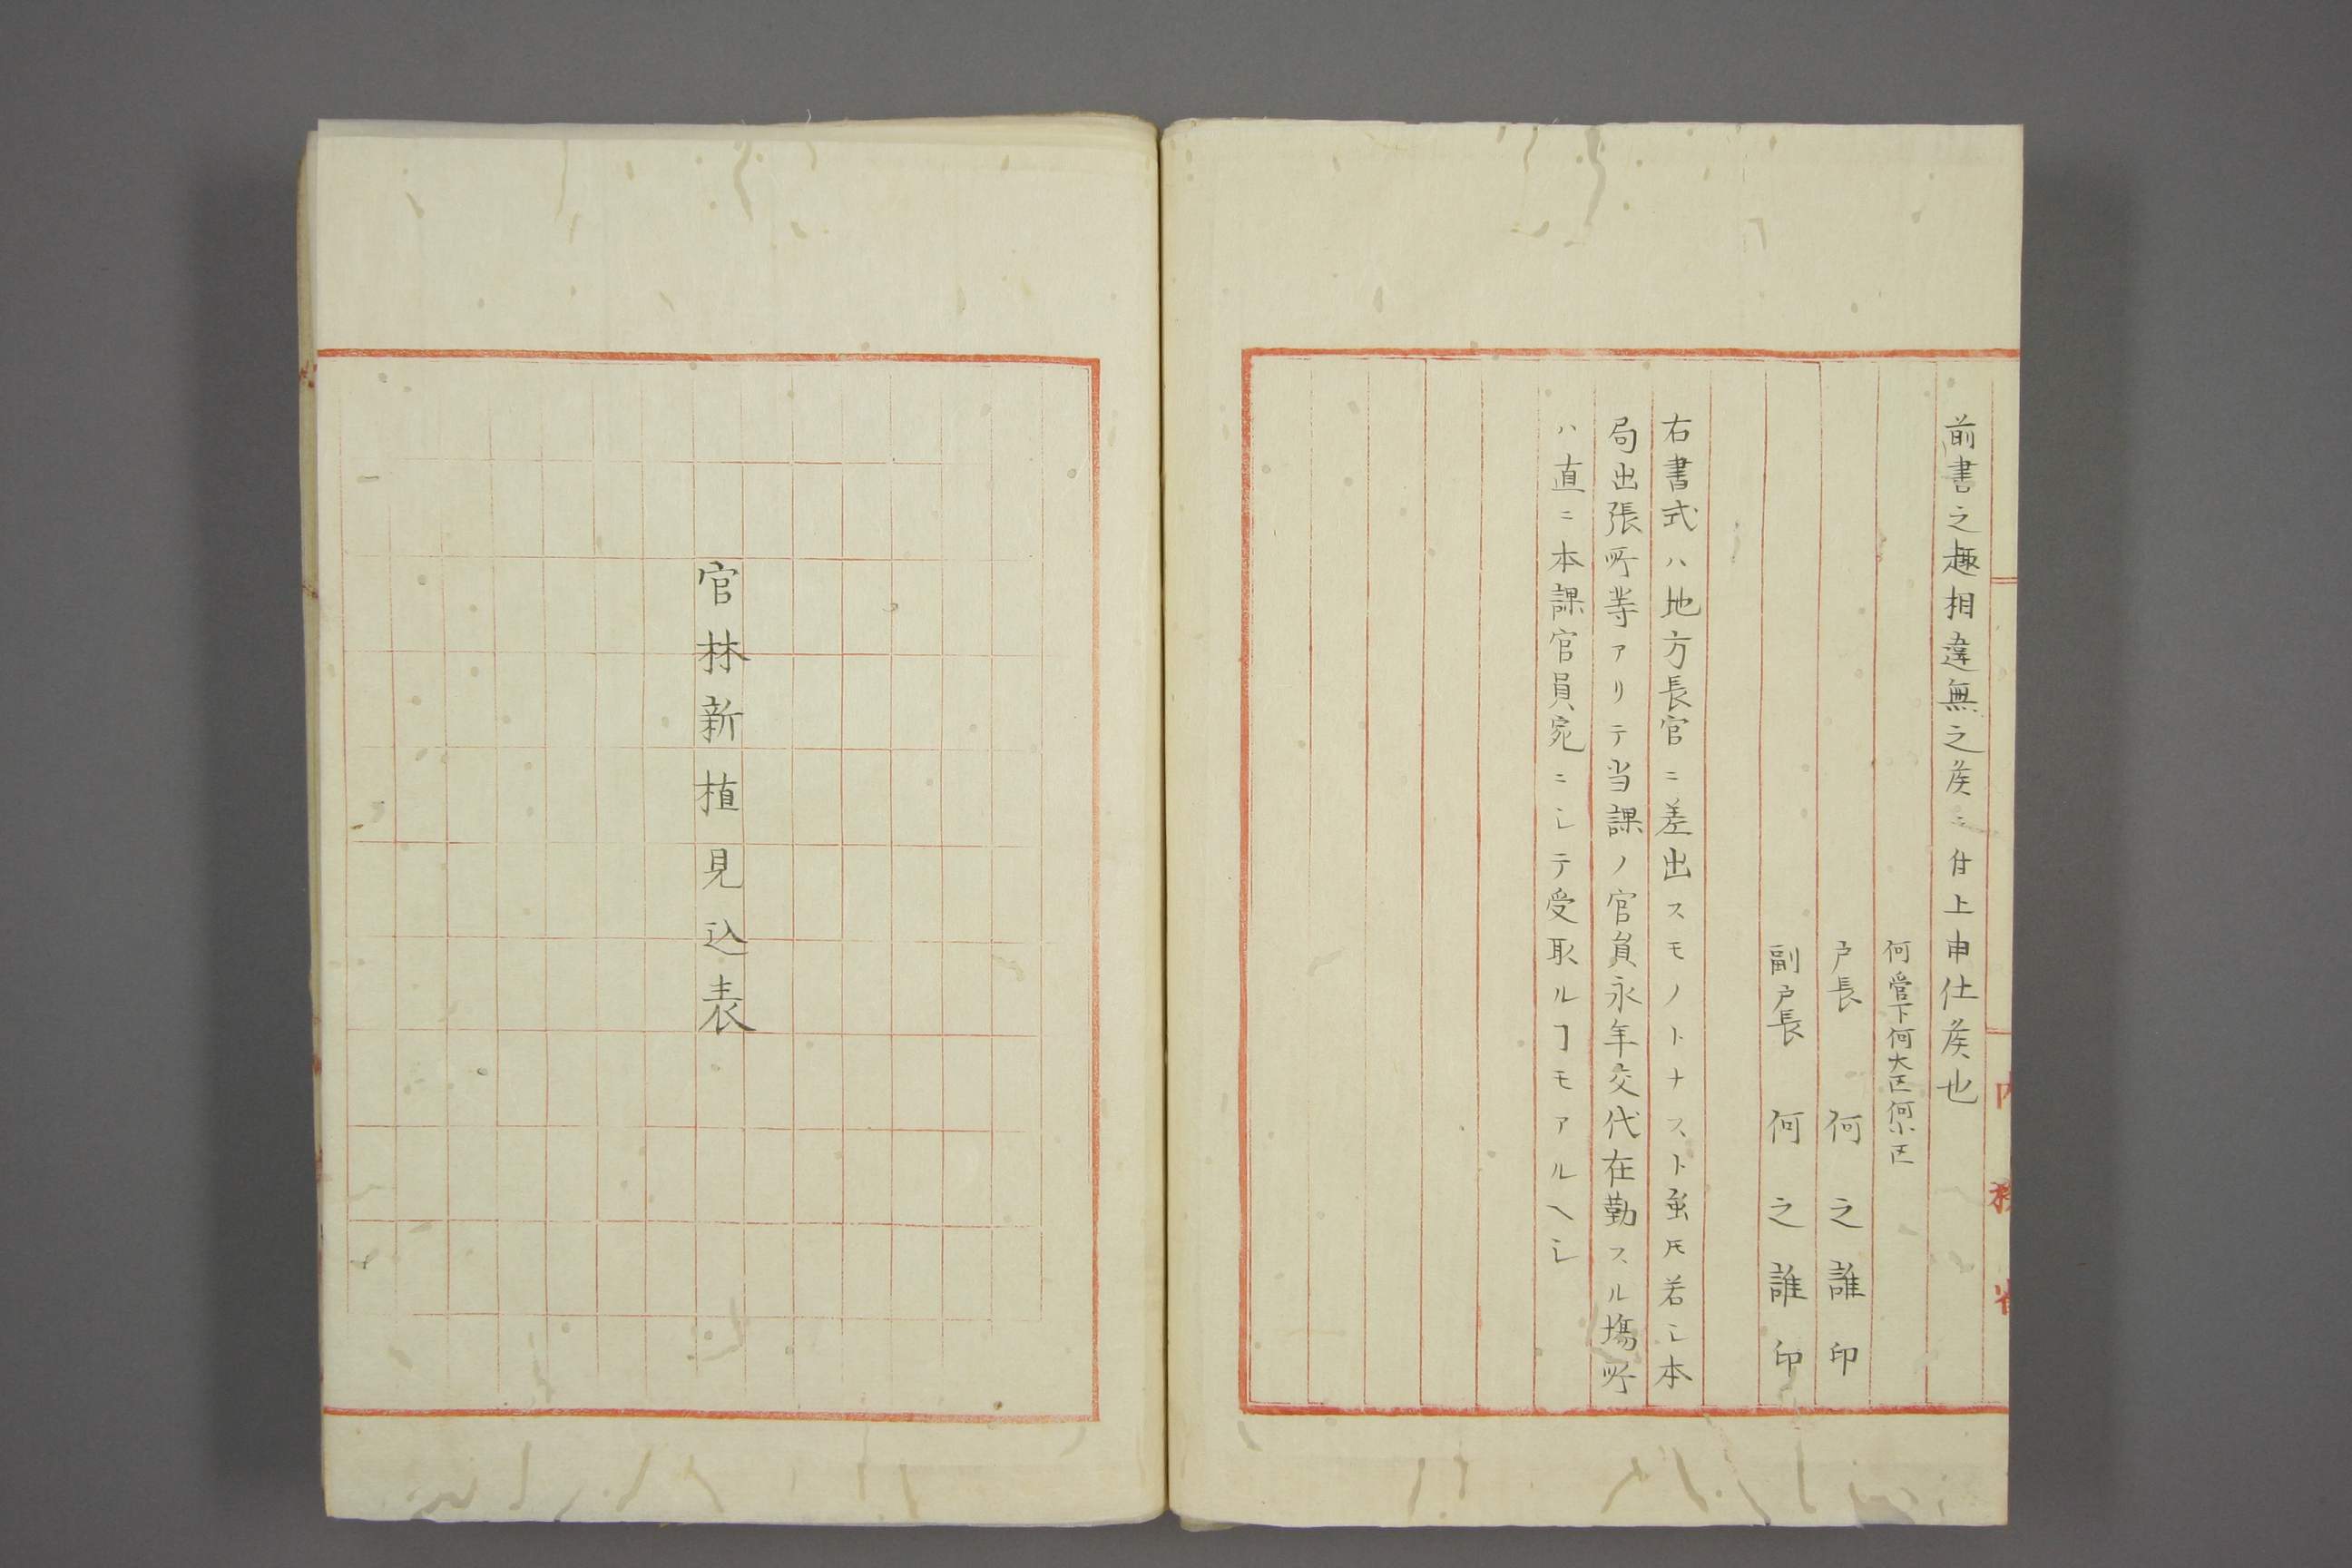 前書之趣相違無之候ニ付上申仕候也
何管下何大区何小区
戸長　何之誰印
副戸長　何之誰印
右書式ハ地方長官ニ差出スモノトナスト雖𪜈若シ本
局出張所等アリテ当課ノ官員永年交代在勤スル場所
ハ直ニ本課官員宛ニシテ受取ルヿモアルヘシ
内務省
官林新植見込表